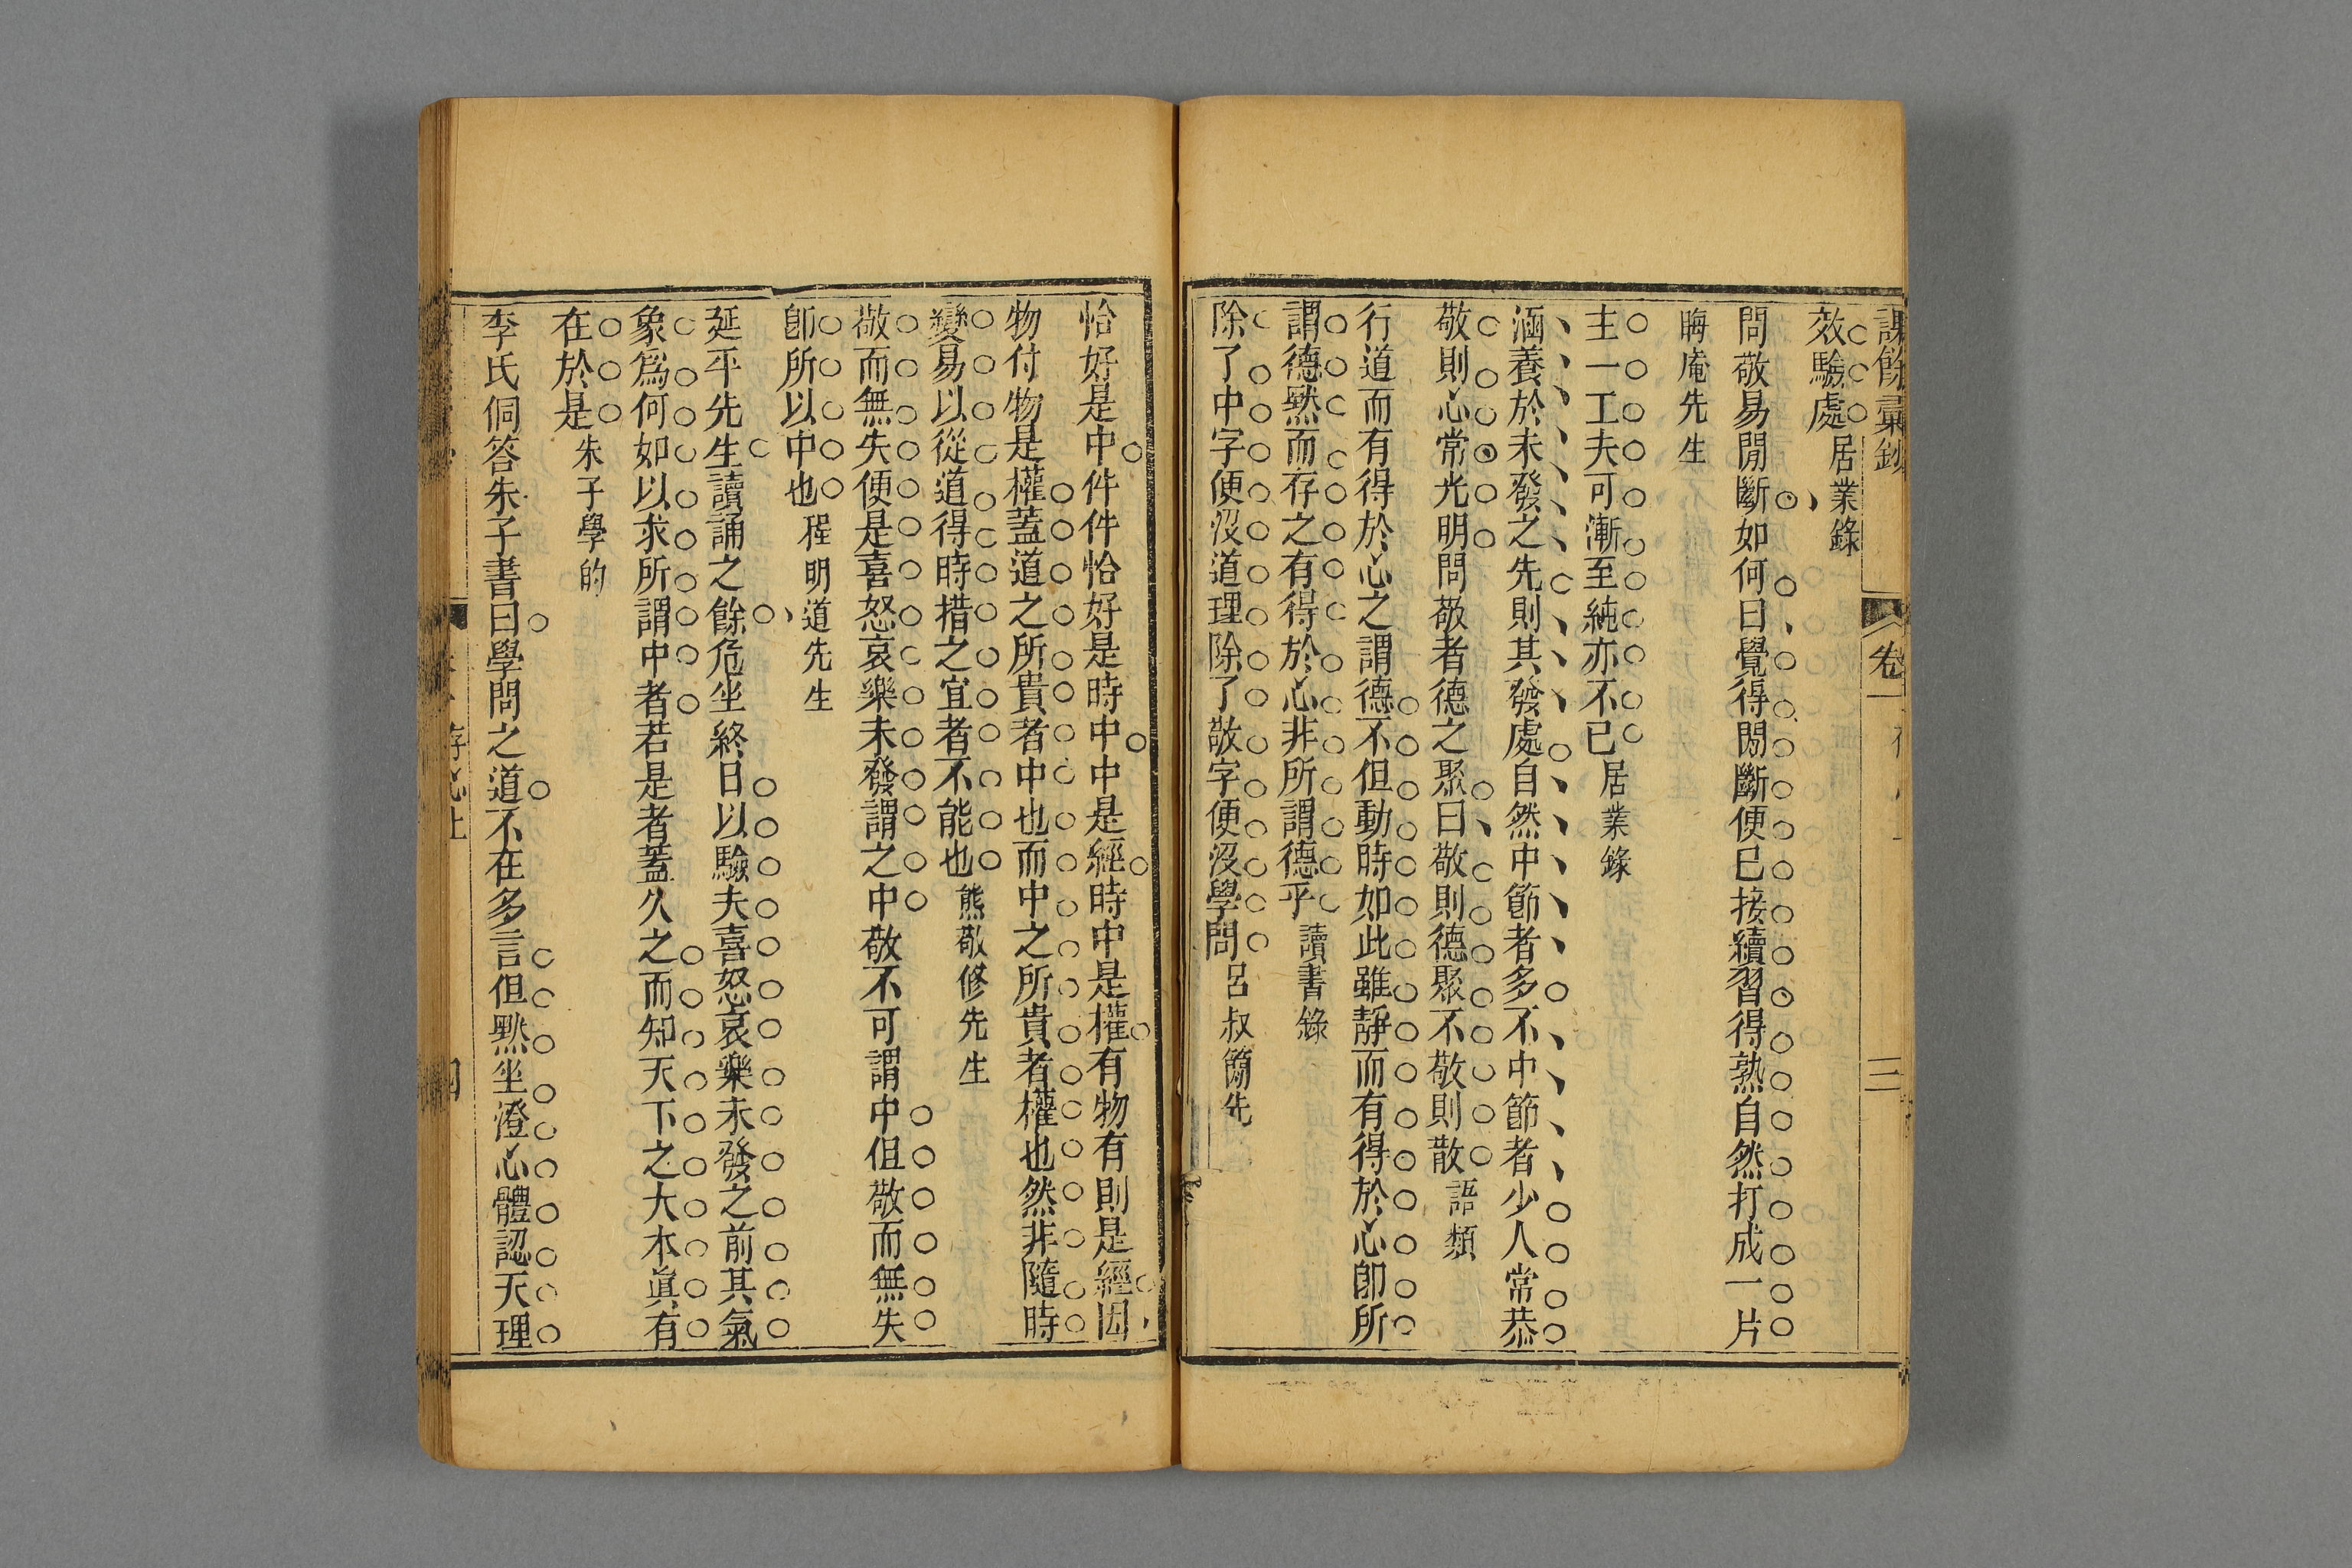 課餘彙鈔 卷一 三
效驗處居業錄
問敬易間斷如何曰覺得間斷便已接續習得熟自然打成一片
晦庵先生
主一工夫可漸至純亦不已居業錄
涵養於未發之先則其發處自然中節者多不中節者少人常恭
敬則心常光明問敬者德之聚曰敬則德聚不敬則散語類
行道而有得於心之謂德不但動時如此雖靜而有得於心卽所
謂德黙而存之有得於心非所謂德乎讀書錄
除了中字便沒道理除了敬字便沒學問呂叔簡先
恰好是中件件恰好是時中中是經時中是權有物有則是經因
物付物是權蓋道之所貴者中也而中之所貴者權也然非隨時
變易以從道得時措之宜者不能也熊敬修先生
敬而無失便是喜怒哀樂未發謂之中敬不可謂中但敬而無失
卽所以中也程明道先生
延平先生讀誦之餘危坐終日以驗夫喜怒哀樂未發之前其氣
象爲何如以求所謂中者若是者蓋久之而知天下之大本眞有
在於是朱子學的
李氏侗答朱子書曰學問之道不在多言但黙坐澄心體認天理
存心上